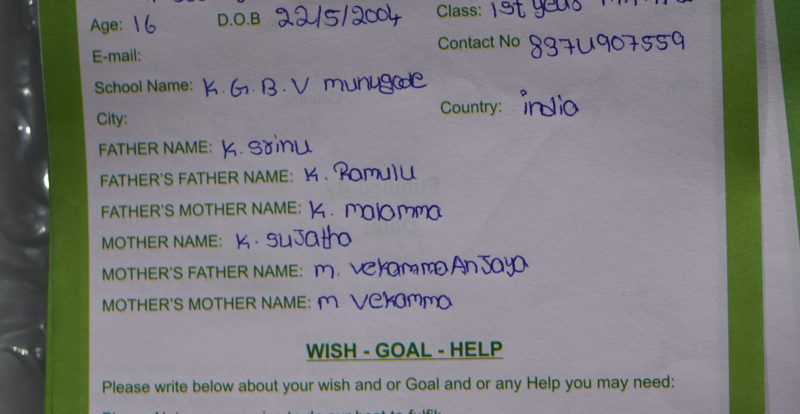 Age: 16 D.O.B 22/5/2004 Class: 1st year
E-mail: Contact No 8374907559
School Name: K. G. B. V munugode
City: Country: india
FATHER NAME: K. Srinu
FATHER'S FATHER NAME: K. Ramulu
FATHER'S MOTHER NAME: K. malamma
MOTHER NAME: K. sujatha
MOTHER'S FATHER NAME: m. vekamma Anjaya
MOTHER'S MOTHER NAME: m vekamma
WISH - GOAL - HELP
Please write below about your wish and or Goal and or any Help you may need: